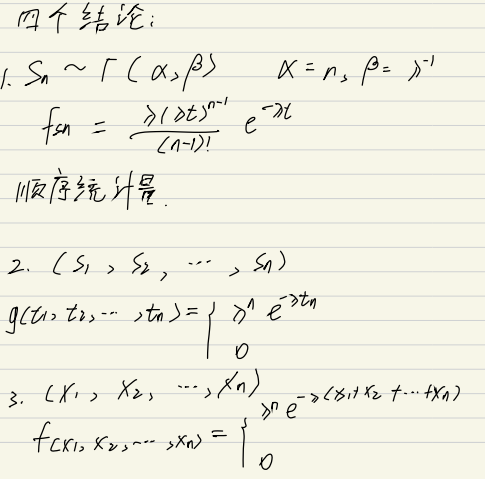 四个结论:
1. Sn ~ Γ(α,β)  α = n, β = λ⁻¹
fsn = λ(λt)ⁿ⁻¹ / (n-1)! e^-λt
顺序统计量.
2. (S₁, S₂, ⋯, Sn)
g(t₁, t₂, ⋯, tn) = { λⁿ e^-λtn
0
3. (X₁, X₂, ⋯, Xn)
f(x₁, x₂, ⋯, xn) = { λⁿ e^-λ(x₁+x₂+⋯+xn)
0